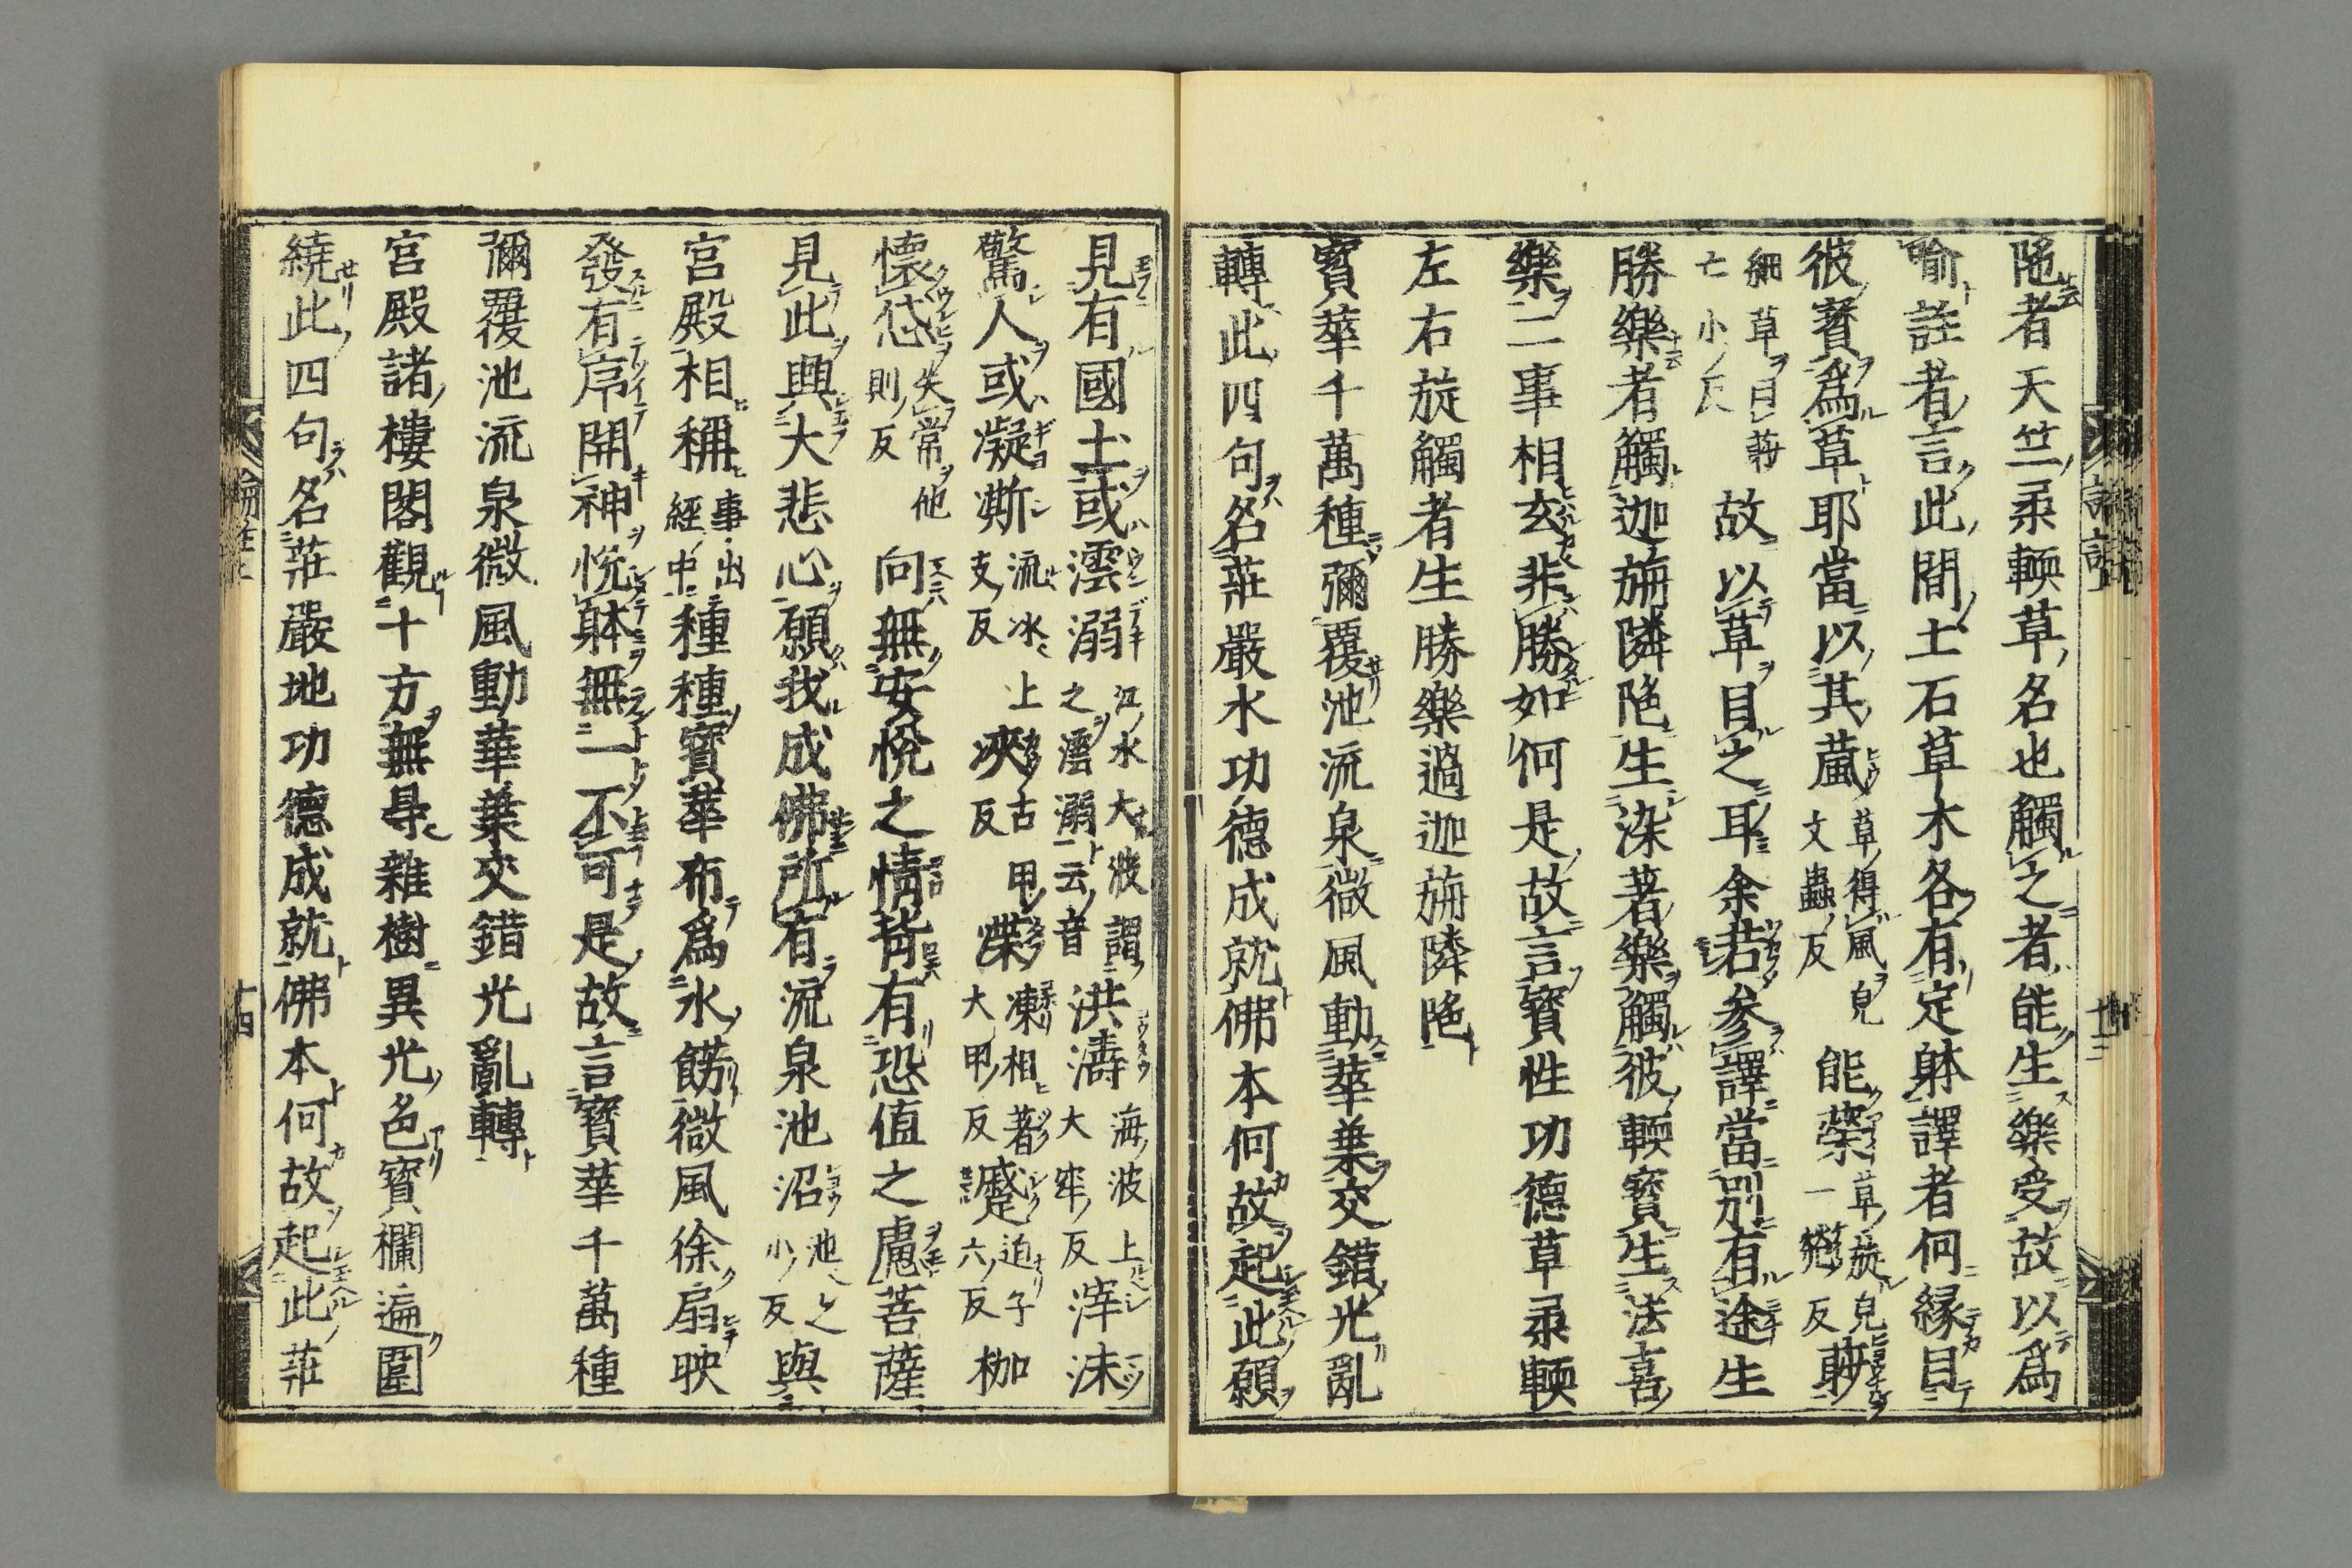 陁者天竺柔輭草名也觸之者能生樂受故以爲
喻註者言此間土石草木各有定躰譯者何緣目
彼寶爲草耶當以其葻草得風皃文蟲反能縈草旋皃一𦁐反䓯
細草曰䓯亡小反故以草目之耳余若參譯當別有途生
勝樂者觸迦旃隣陁生染著樂觸彼輭寶生法喜
樂二事相玄非勝如何是故言寶性功德草柔輭
左右旋觸者生勝樂過迦旃隣陁
寶華千萬種彌覆池流泉微風動華葉交錯光亂
轉此四句名莊嚴水功德成就佛本何故起此願
見有國土或澐溺江水大波謂之澐溺云音洪濤海波上大牢反滓沫
驚人或凝澌流冰上支反浹古甲反渫凍相著大甲反蹙迫子六反枷
懷忒失常他則反向無安悅之情背有恐值之慮菩薩
見此興大悲心願我成佛所有流泉池沼池之小反與
宮殿相稱事出經中種種寶華布爲水飾微風徐扇映
發有序開神悅躰無一不可是故言寶華千萬種
彌覆池流泉微風動華葉交錯光亂轉
宮殿諸樓閣觀十方無㝵雜樹異光色寶欄遍圍
繞此四句名莊嚴地功德成就佛本何故起此莊